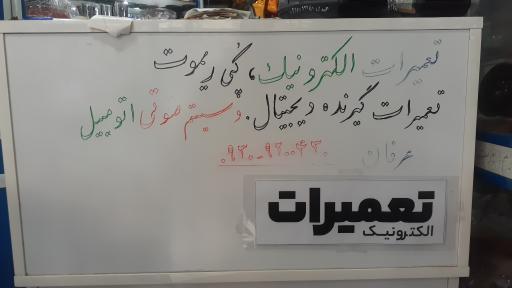 تعمیرات الکترونیک، کپی ریموت
تعمیرات گیرنده دیجیتال. و سیستم صوتی اتومبیل
عرفان
تعمیرات
الکترونیک